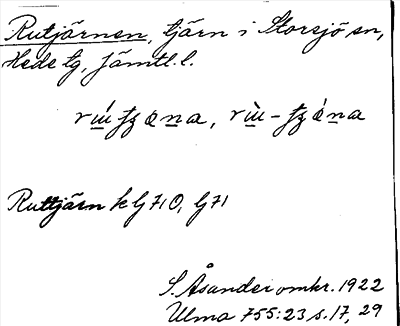 Rutjärnen, tjärn i Storsjö sn,
Hede tg, Jämtl. l.
Ruttjärn k G 71 O, G 71
S. Åsander omkr. 1922
Ulma 755:23 s. 17, 29